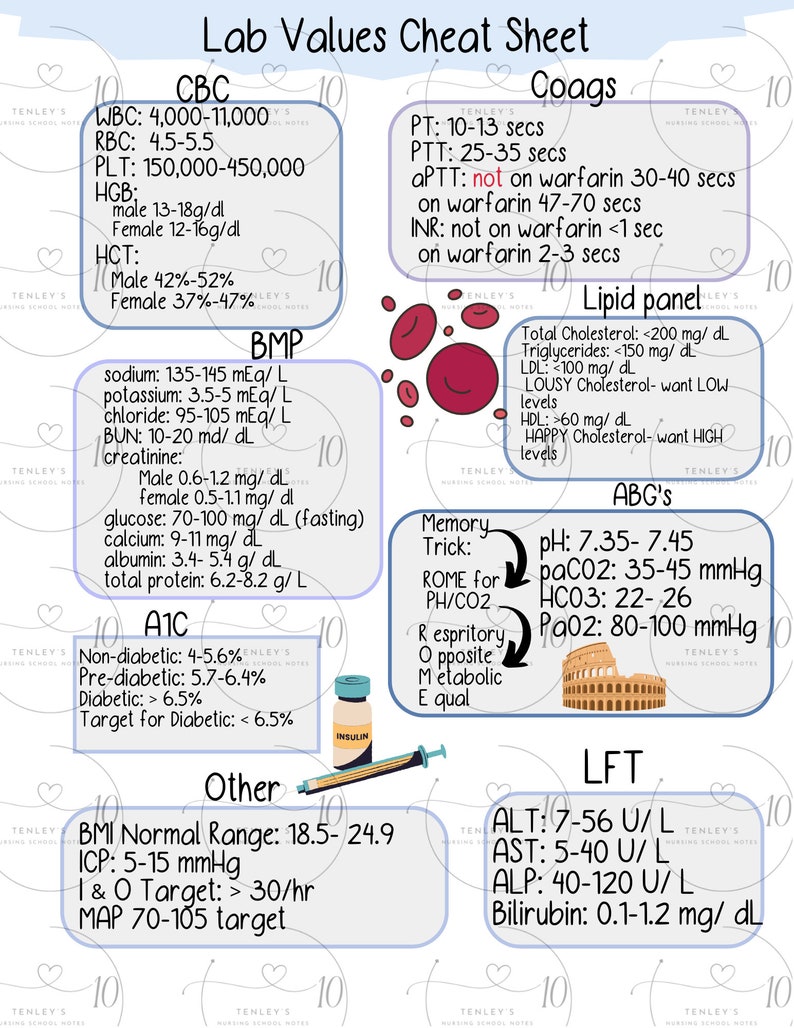 Lab Values Cheat Sheet
CBC
WBC: 4,000-11,000
RBC: 4.5-5.5
PLT: 150,000-450,000
HGB:
male 13-18g/dl
Female 12-16g/dl
HCT:
Male 42%-52%
Female 37%-47%
Coags
PT: 10-13 secs
PTT: 25-35 secs
aPTT: not on warfarin 30-40 secs
on warfarin 47-70 secs
INR: not on warfarin <1 sec
on warfarin 2-3 secs
Lipid panel
Total Cholesterol: <200 mg/ dL
Triglycerides: <150 mg/ dL
LDL: <100 mg/ dL
LOUSY Cholesterol- want LOW
levels
HDL: >60 mg/ dL
HAPPY Cholesterol- want HIGH
levels
BMP
sodium: 135-145 mEq/ L
potassium: 3.5-5 mEq/ L
chloride: 95-105 mEq/ L
BUN: 10-20 md/ dL
creatinine:
Male 0.6-1.2 mg/ dL
female 0.5-1.1 mg/ dl
glucose: 70-100 mg/ dL (fasting)
calcium: 9-11 mg/ dL
albumin: 3.4- 5.4 g/ dL
total protein: 6.2-8.2 g/ L
ABG's
Memory
Trick:
ROME for
PH/CO2
R espritory
O pposite
M etabolic
E qual
pH: 7.35- 7.45
paCO2: 35-45 mmHg
HCO3: 22- 26
PaO2: 80-100 mmHg
A1C
Non-diabetic: 4-5.6%
Pre-diabetic: 5.7-6.4%
Diabetic: > 6.5%
Target for Diabetic: < 6.5%
INSULIN
Other
BMI Normal Range: 18.5- 24.9
ICP: 5-15 mmHg
I & O Target: > 30/hr
MAP 70-105 target
LFT
ALT: 7-56 U/ L
AST: 5-40 U/ L
ALP: 40-120 U/ L
Bilirubin: 0.1-1.2 mg/ dL
TENLEY'S
NURSING SCHOOL NOTES
10